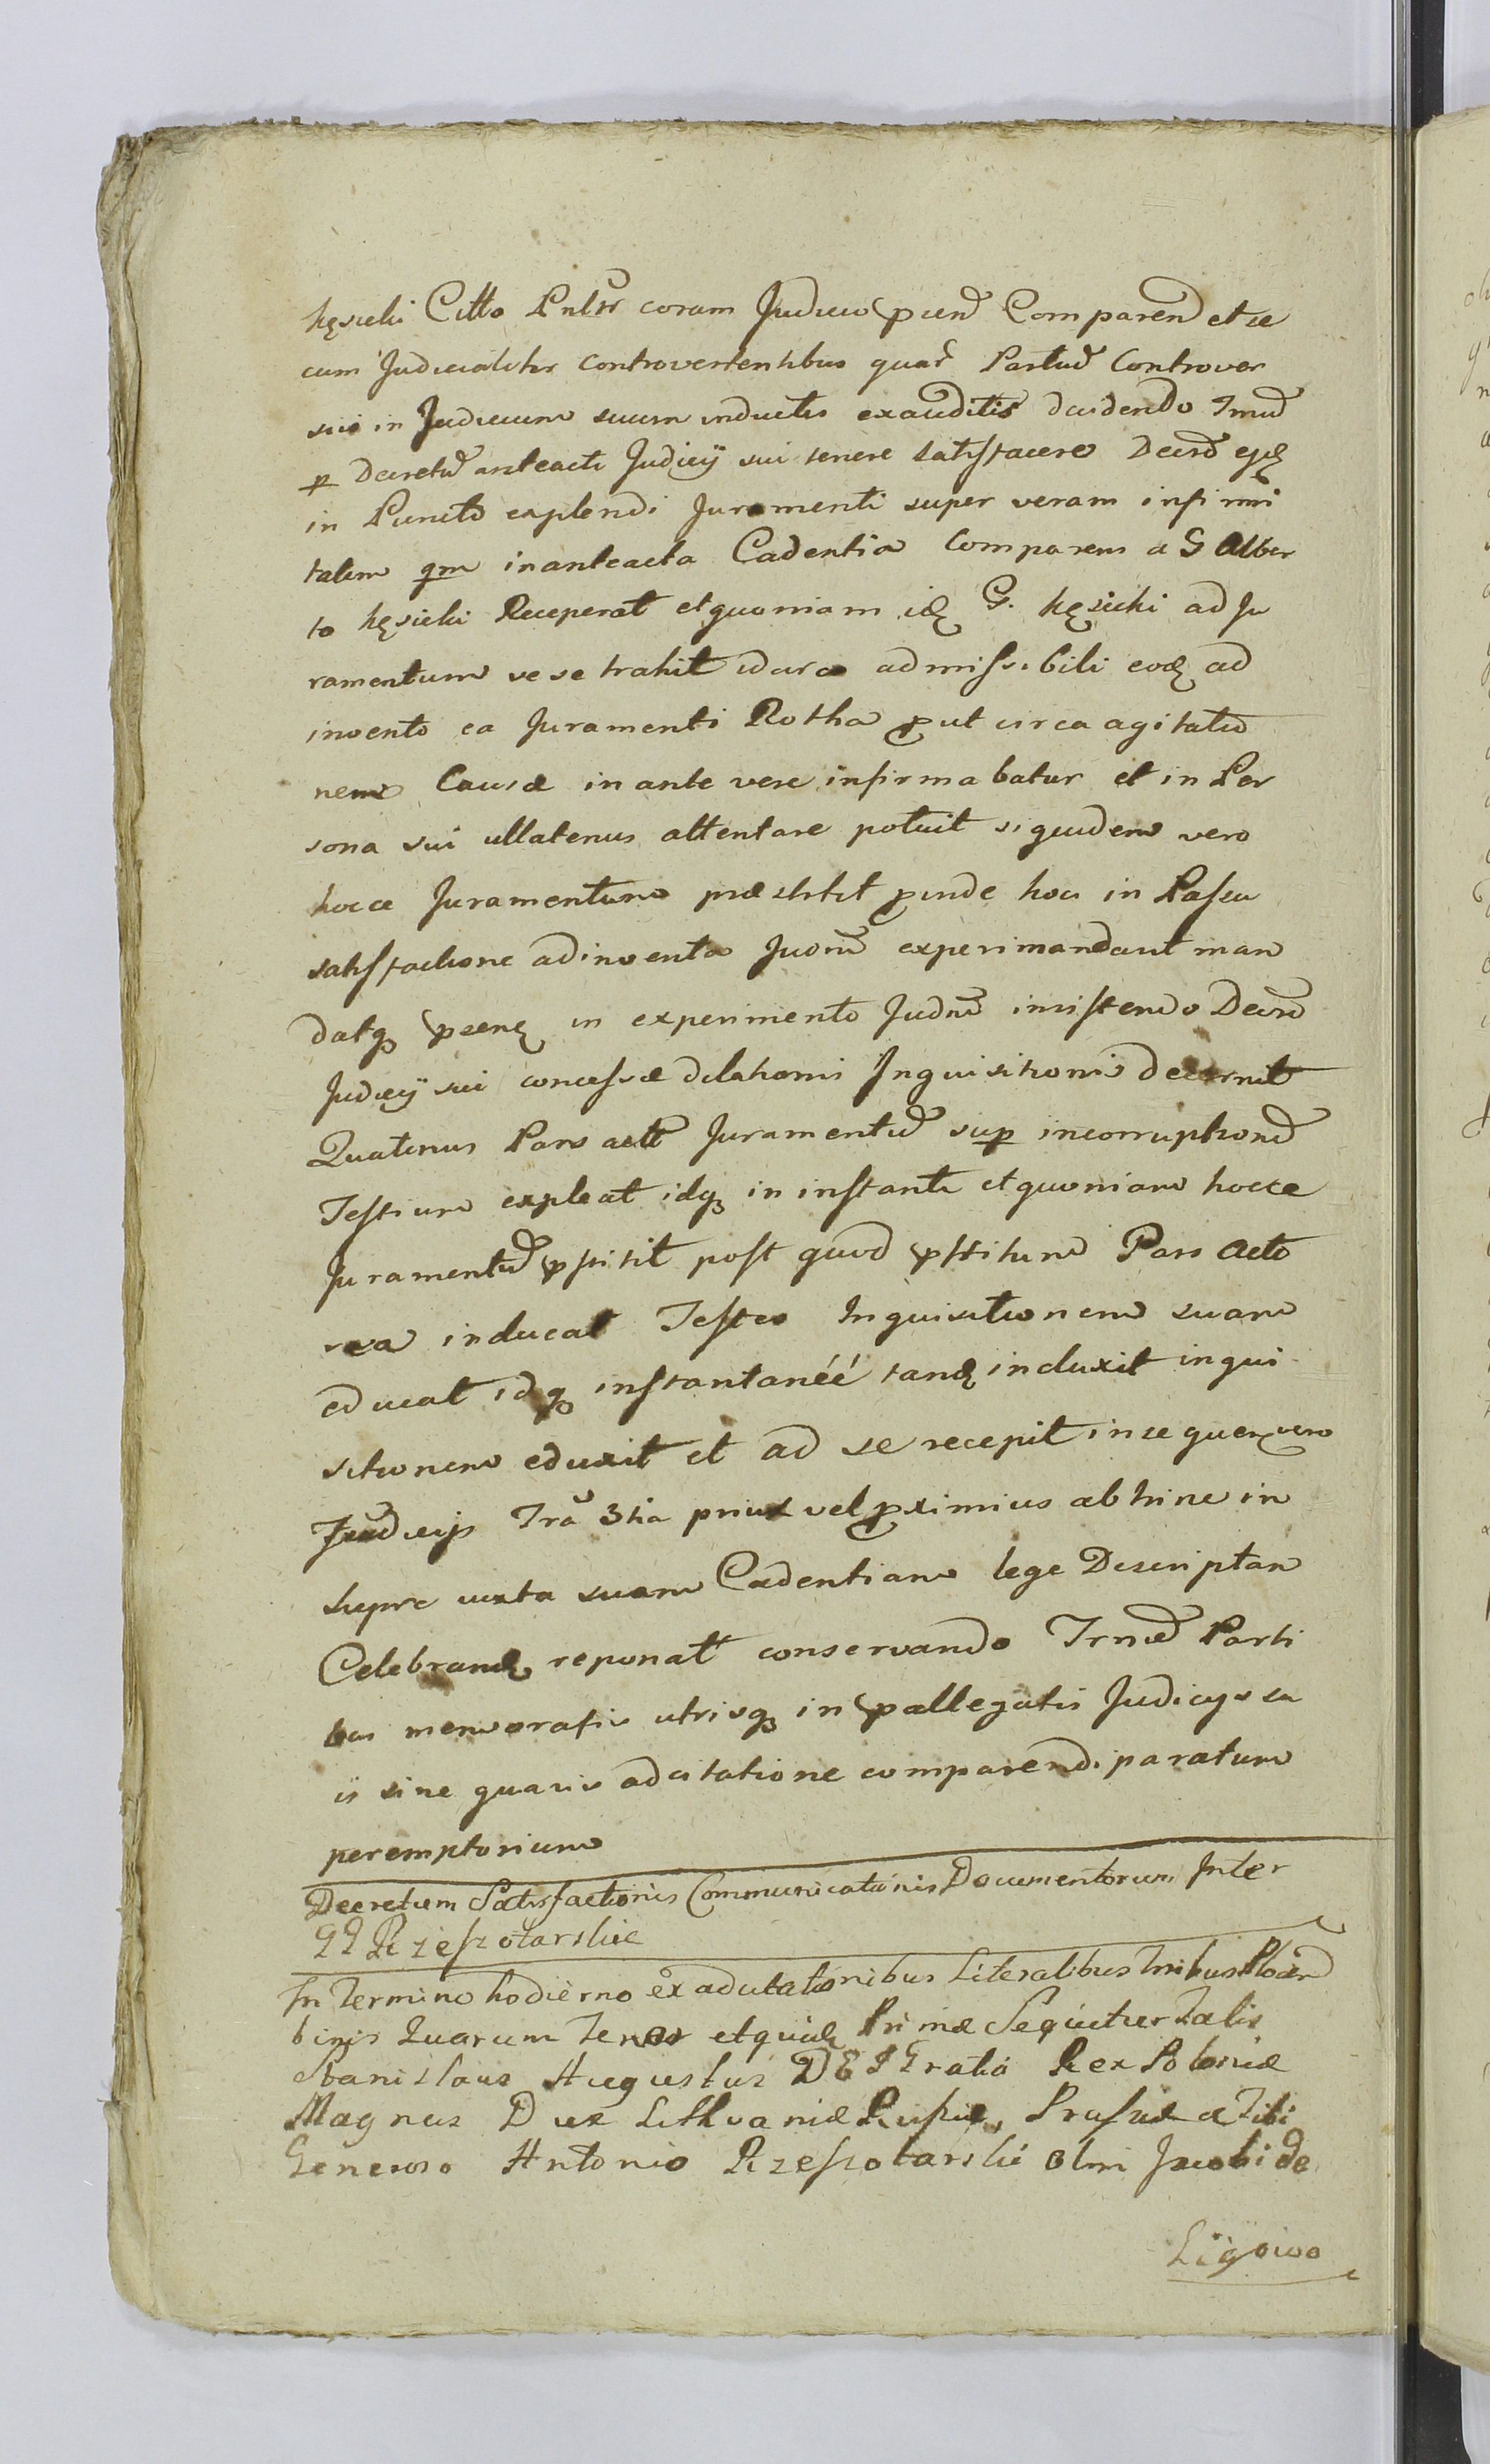 Kęsicki Citto Pnltr coram Judicio psend Comparend et se
cum Judicialiter controvertentibus quar Partud Controver
siis in Judicium suum inductis exauditis decidendo Imud
p Decretud anteacti Judicÿ sui tenere satisfacere Decrd ejq
in Puncto explendi Juramenti super veram infirmi
tatem qm in anteacta Cadentia Comparens a G Alber
to Kęsicki Receperat et quoniam idq G. Kęsicki ad Ju
ramentum se se trahit idcirco admissibili eodq ad
invento ea Juramenti Rotha put circa agitatio
nem Causæ in ante vere infirmabatur et in Per
sona sui ullatenus attentare potuit siquidem vero
hocce Juramentum præstitit pinde hoci in Passu
satisfactione adinventa Judm experimandarit man
datq psenq in experimento Judm insistendo Decrd
Judicÿ sui concessæ dilationis Inquisitionis decernit
Quatenus Pars actr Juramentud sup incorruptiond
Testium expleat idq in instanti et quoniam hocce
Juramentud pstitit post quod pstitum Pars Acto
rea inducat Testes Inquisitionem suam
educat idq instantanéé tandq induxit inqui
sitionem eduxit et ad se recepit insequenq vero
Judicijs Tra 3tia prius vel pximius abhinc in
supre iuxta suam Cadentiam lege Descriptam
Celebrandq reponat conservando Trmd Parti
bus memoratis utrisq in pallegatis Judicijs su
is sine quavis adcitatione comparendi paratum
peremptorium
Decretum Satisfactionis Communicationis Documentorum Inter
GG Rzeszotarskie
In Termino hodierno ex adcitationibus Literalibus tribus
binis Quarum Tenor et quidq Primæ Sequitur Talis
Stanislaus Augustus DEI Gratia Rex Poloniæ
Magnus Dux Lithvaniæ Russiæ, Prussiæ & Tibi
Generoso Antonio Rzeszotarski olim Jacobi de
Ligowo